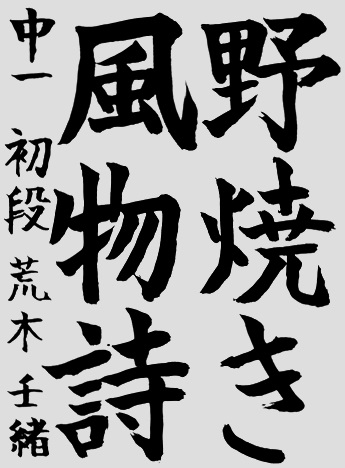 野焼き
風物詩
中一 初段 荒木 壬緒